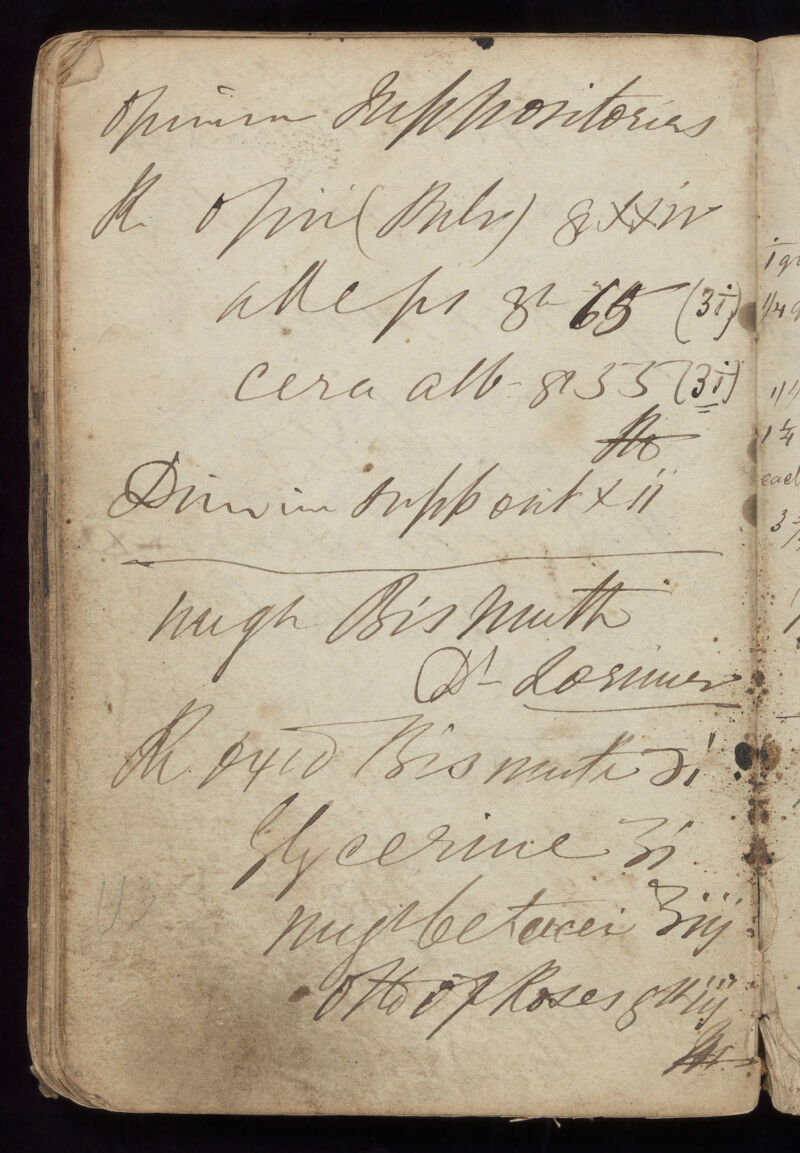 Opium Suppositories
℞ Opii (Pulv) gr xxiv
adeps gr 65 (ʒi)
cera alb- gr 55 (ʒi)
Divi in supposit xii
ungt Bismuth
Dr Lorimer
℞ Oxid Bismuth ʒi
Glycerine ʒi
ungt cetacei ʒiij
Otto of Roses gtt iij
1 gr
1/4 g
1 1/4
each
3